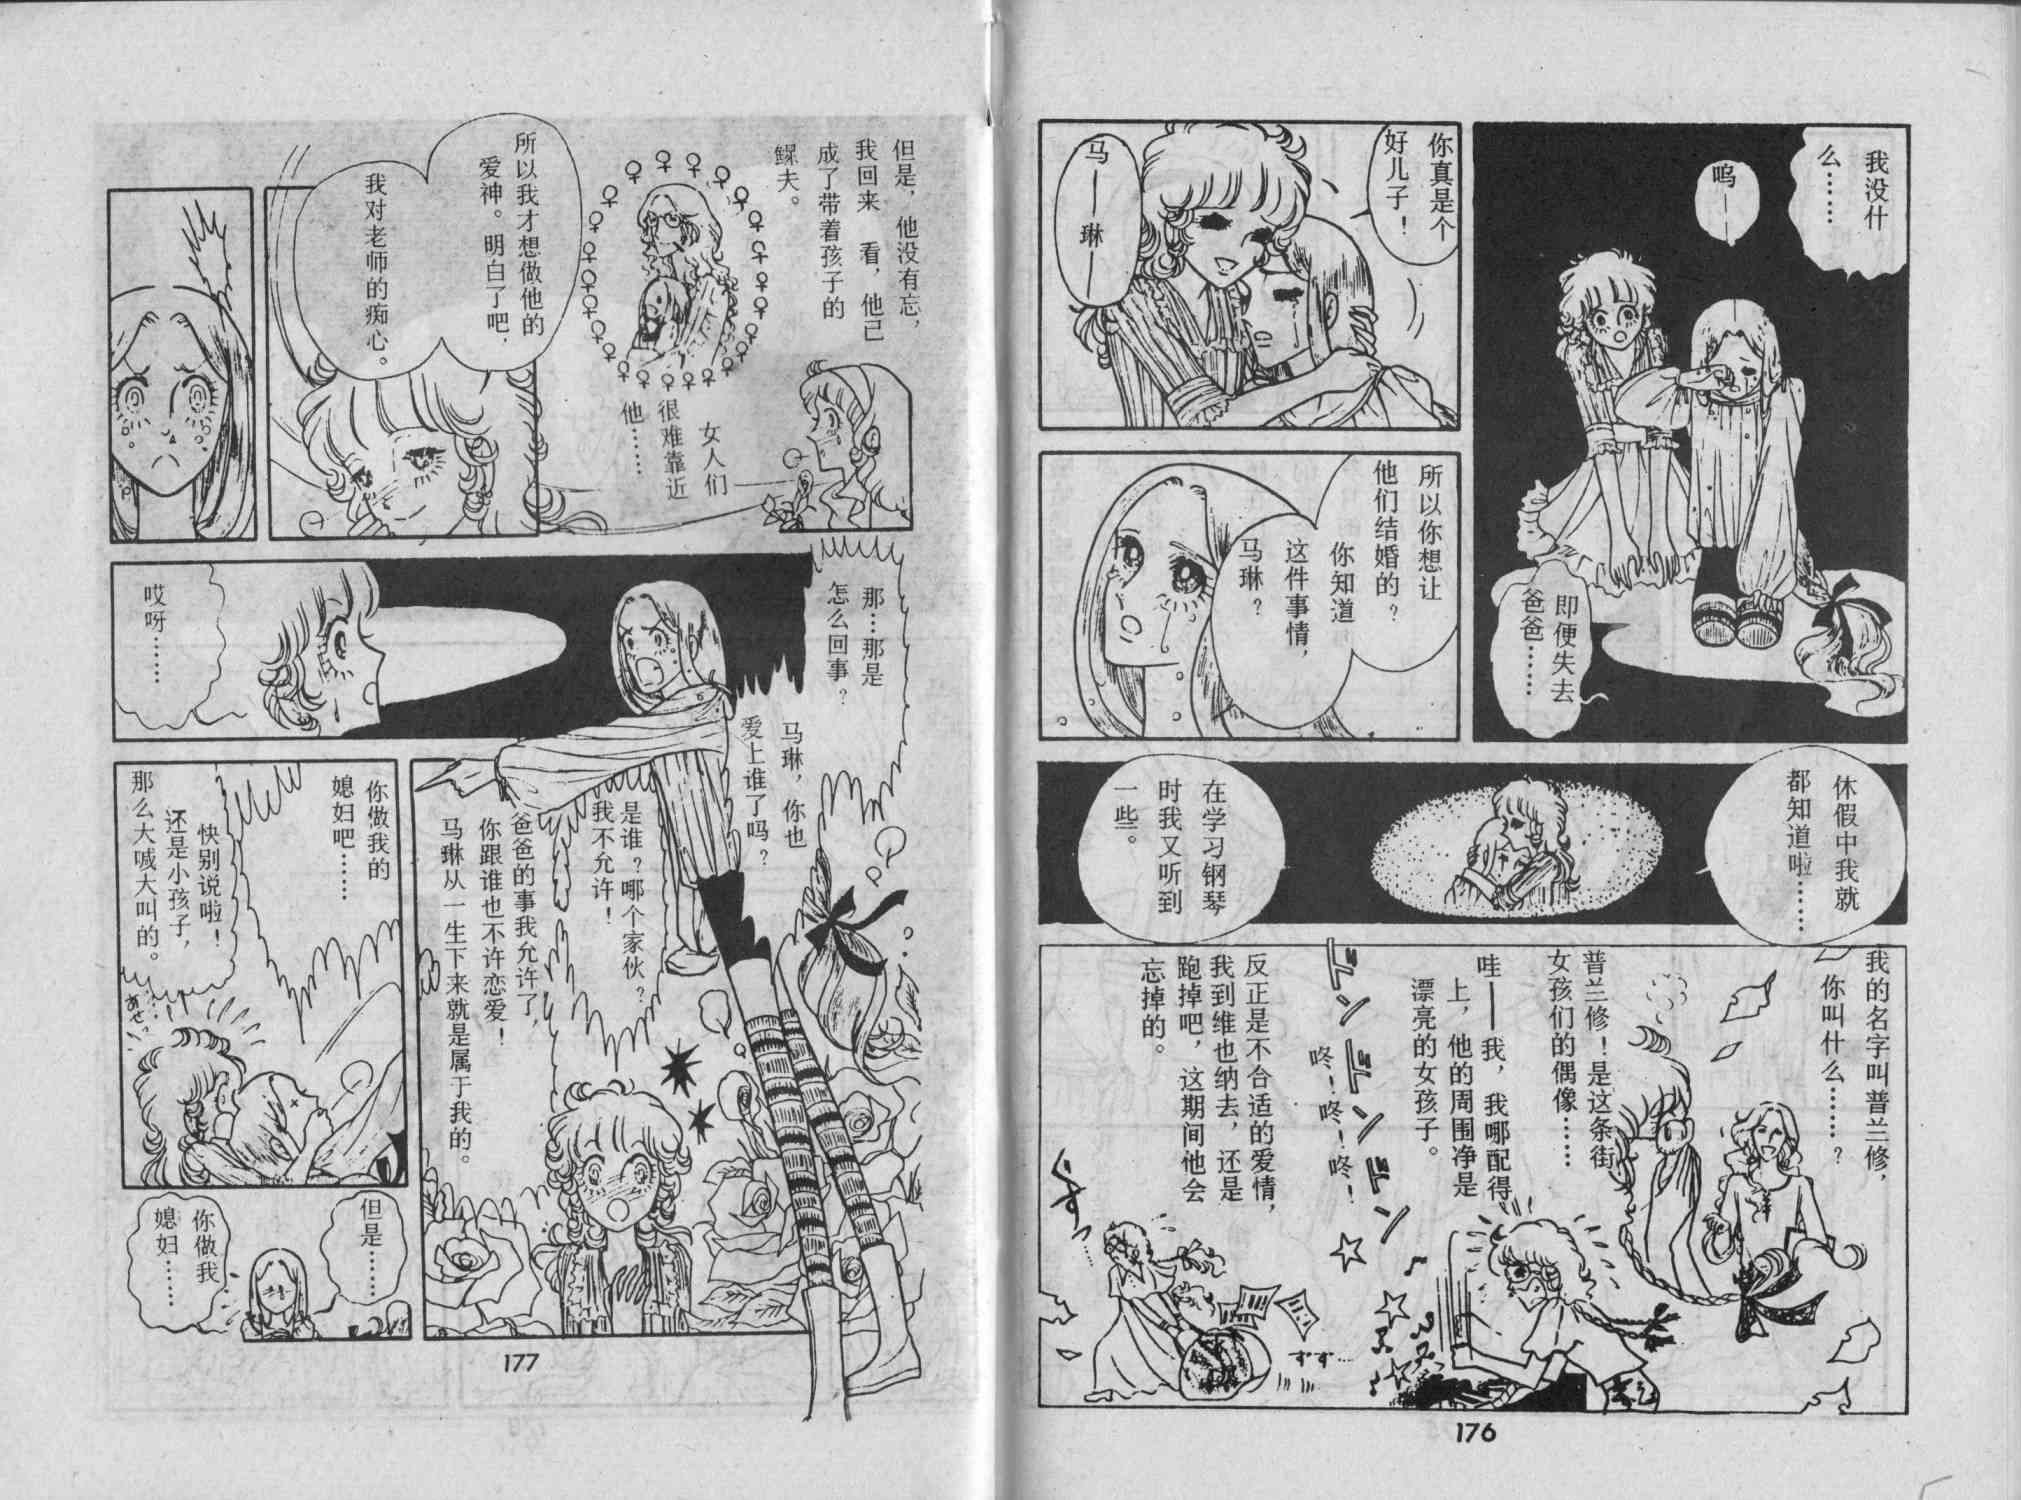 我没什
么……
呜—
即便失去
爸爸……
你真是个
好儿子！
马—
琳—
所以你想让
他们结婚的？
你知道
这件事情，
马琳？
休假中我就
都知道啦……
在学习钢琴
时我又听到
一些。
我的名字叫普兰修，
你叫什么……？
普兰修！是这条街
女孩们的偶像……
哇——我，我哪配得
上，他的周围净是
漂亮的女孩子。
デンデンデン
咚！咚！咚！
反正是不合适的爱情，
我到维也纳去，还是
跑掉吧，这期间他会
忘掉的。
ぐすっ…
ずず…
176
但是，他没有忘，
我回来看，他已
成了带着孩子的
鳏夫。
女人们
很难靠近
他……
所以我才想做他的
爱神。明白了吧，
我对老师的痴心。
那…那是
怎么回事？
马琳，你也
爱上谁了吗？
哎呀……
是谁？哪个家伙？
我不允许！
爸爸的事我允许了，
你跟谁也不许恋爱！
马琳从一生下来就是属于我的。
你做我的
媳妇吧……
快别说啦！
还是小孩子，
那么大喊大叫的。
あせっ
但是……
你做我
媳妇……
177